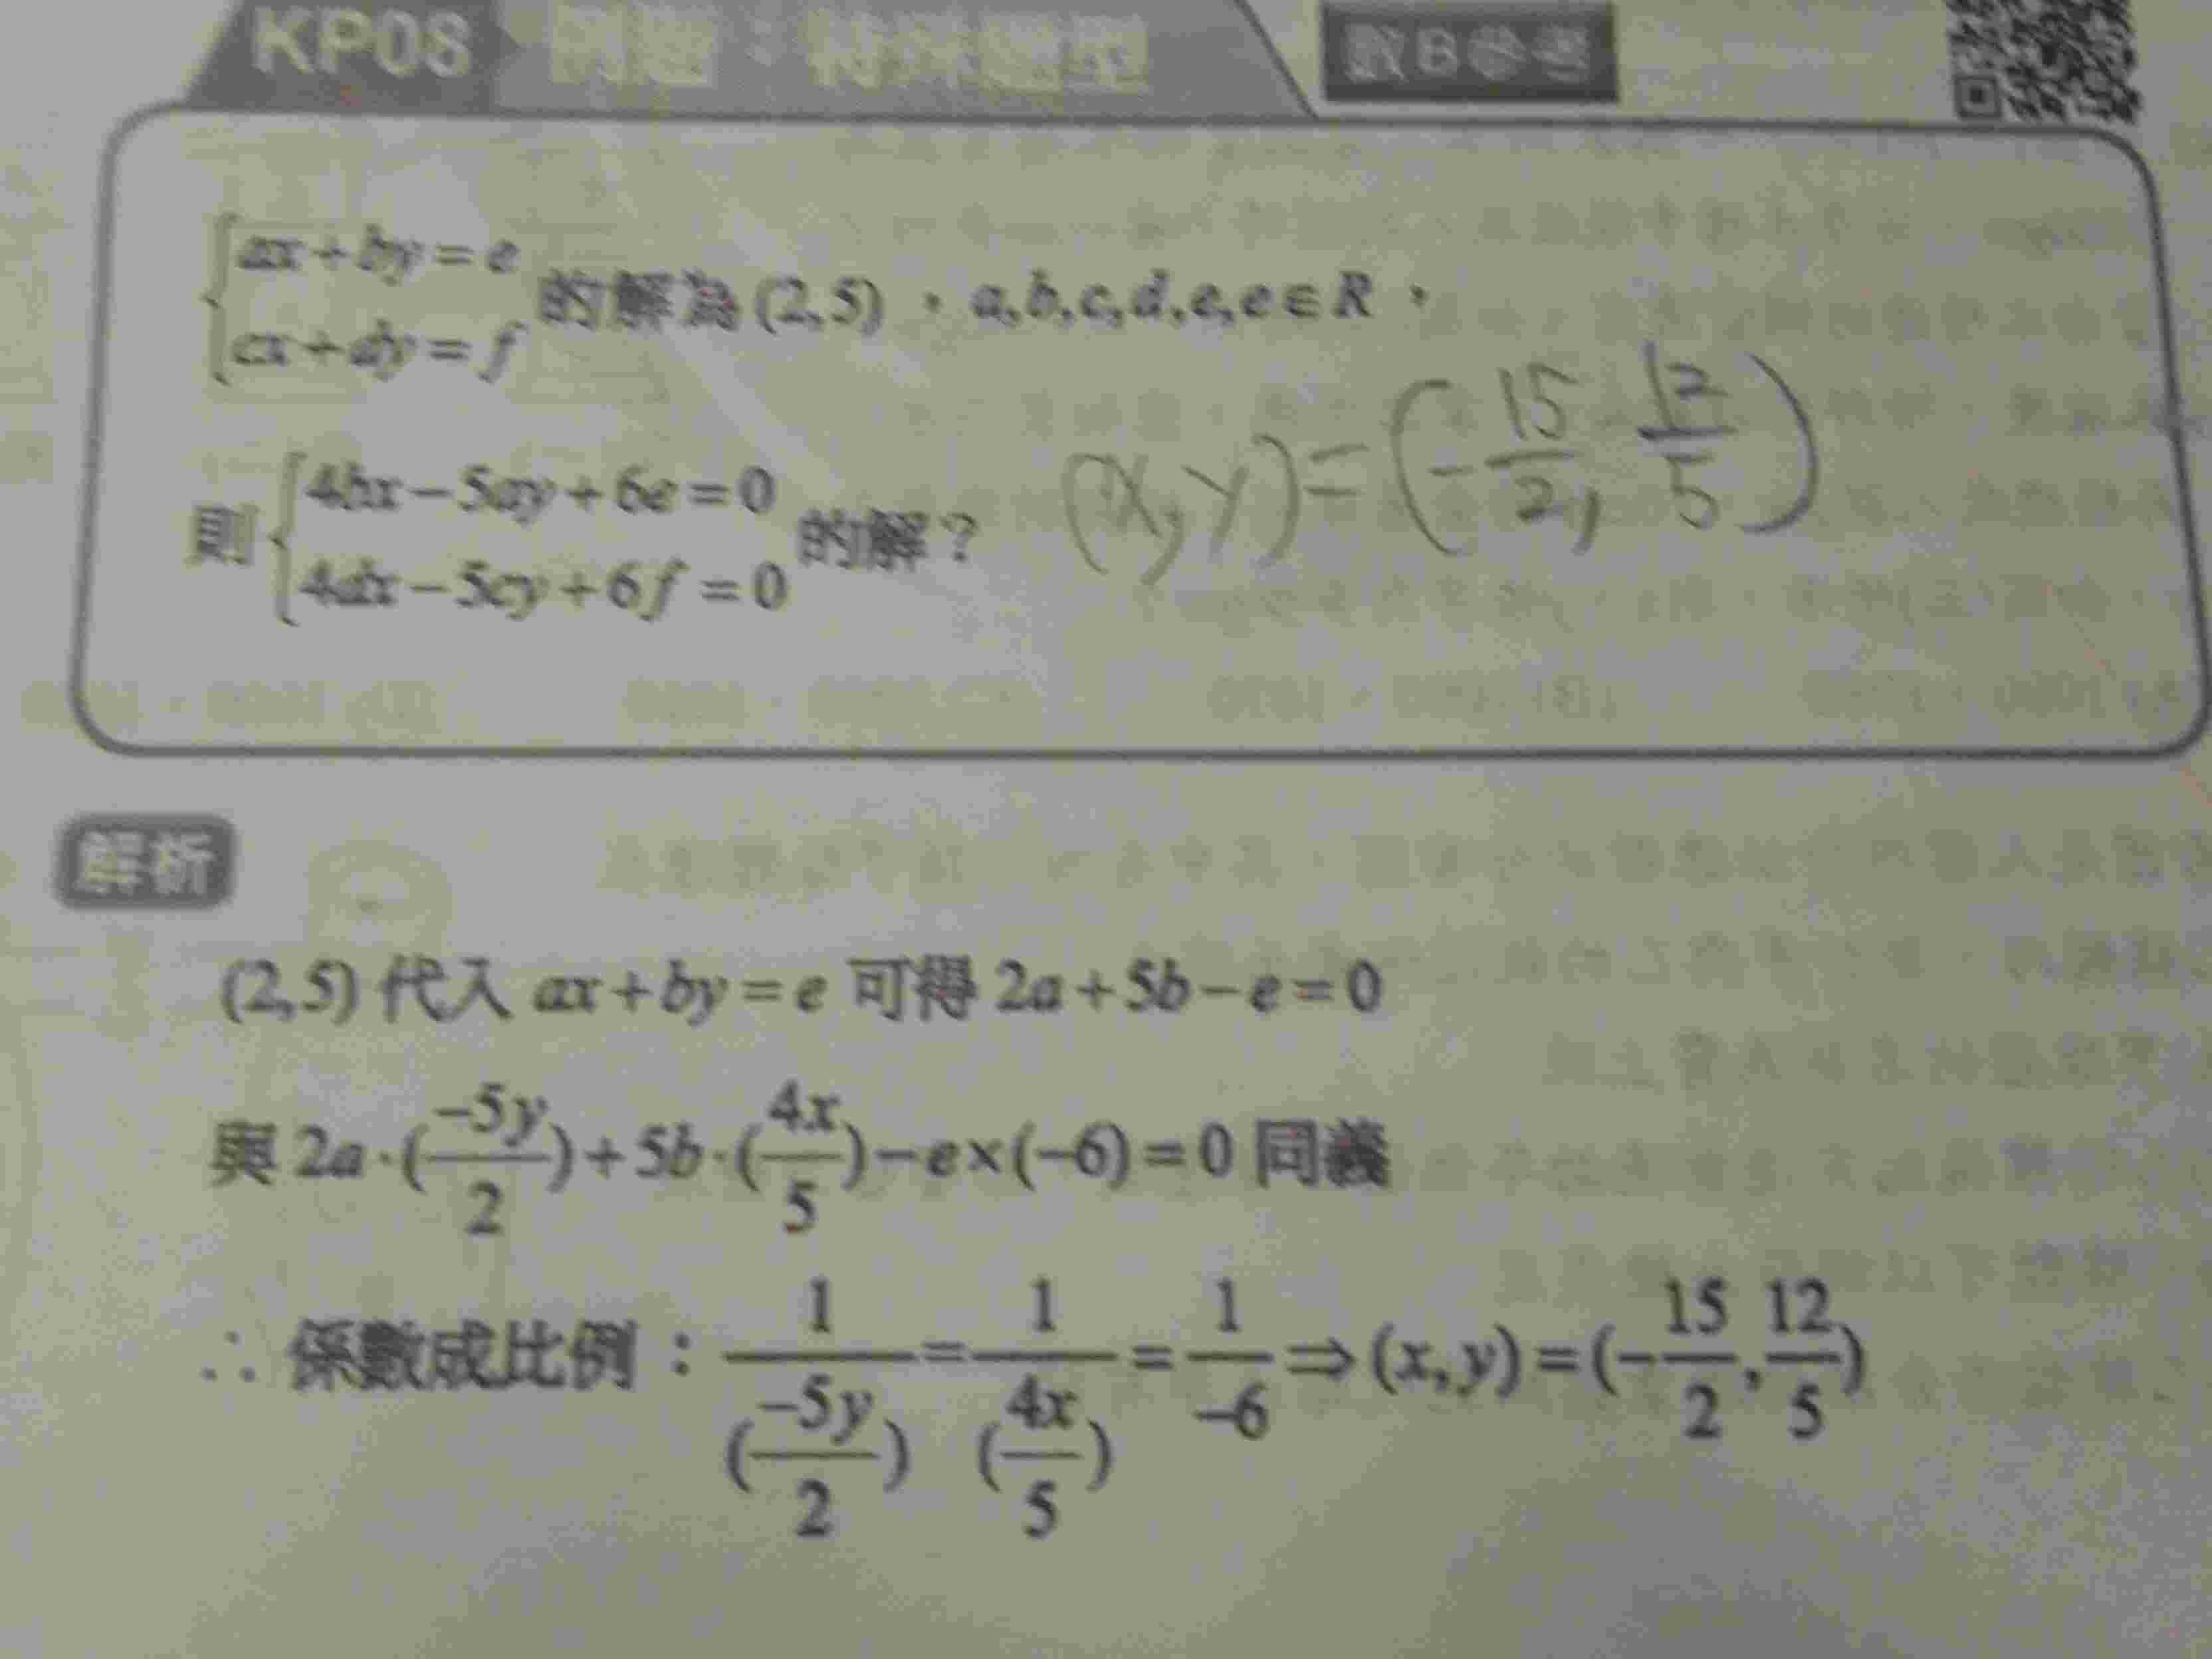 KP08 例題：特殊題型 數B參考
{ax+by=e
cx+dy=f 的解為(2,5)，a,b,c,d,e,e∈R，
則{4bx−5ay+6e=0
4dx−5cy+6f=0 的解？ (x,y)=(-15/2, 12/5)
解析
(2,5) 代入 ax+by=e 可得 2a+5b−e=0
與 2a·(−5y/2)+5b·(4x/5)−e×(−6)=0 同義
∴ 係數成比例：1/(−5y/2)=1/(4x/5)=1/−6⇒(x,y)=(−15/2,12/5)